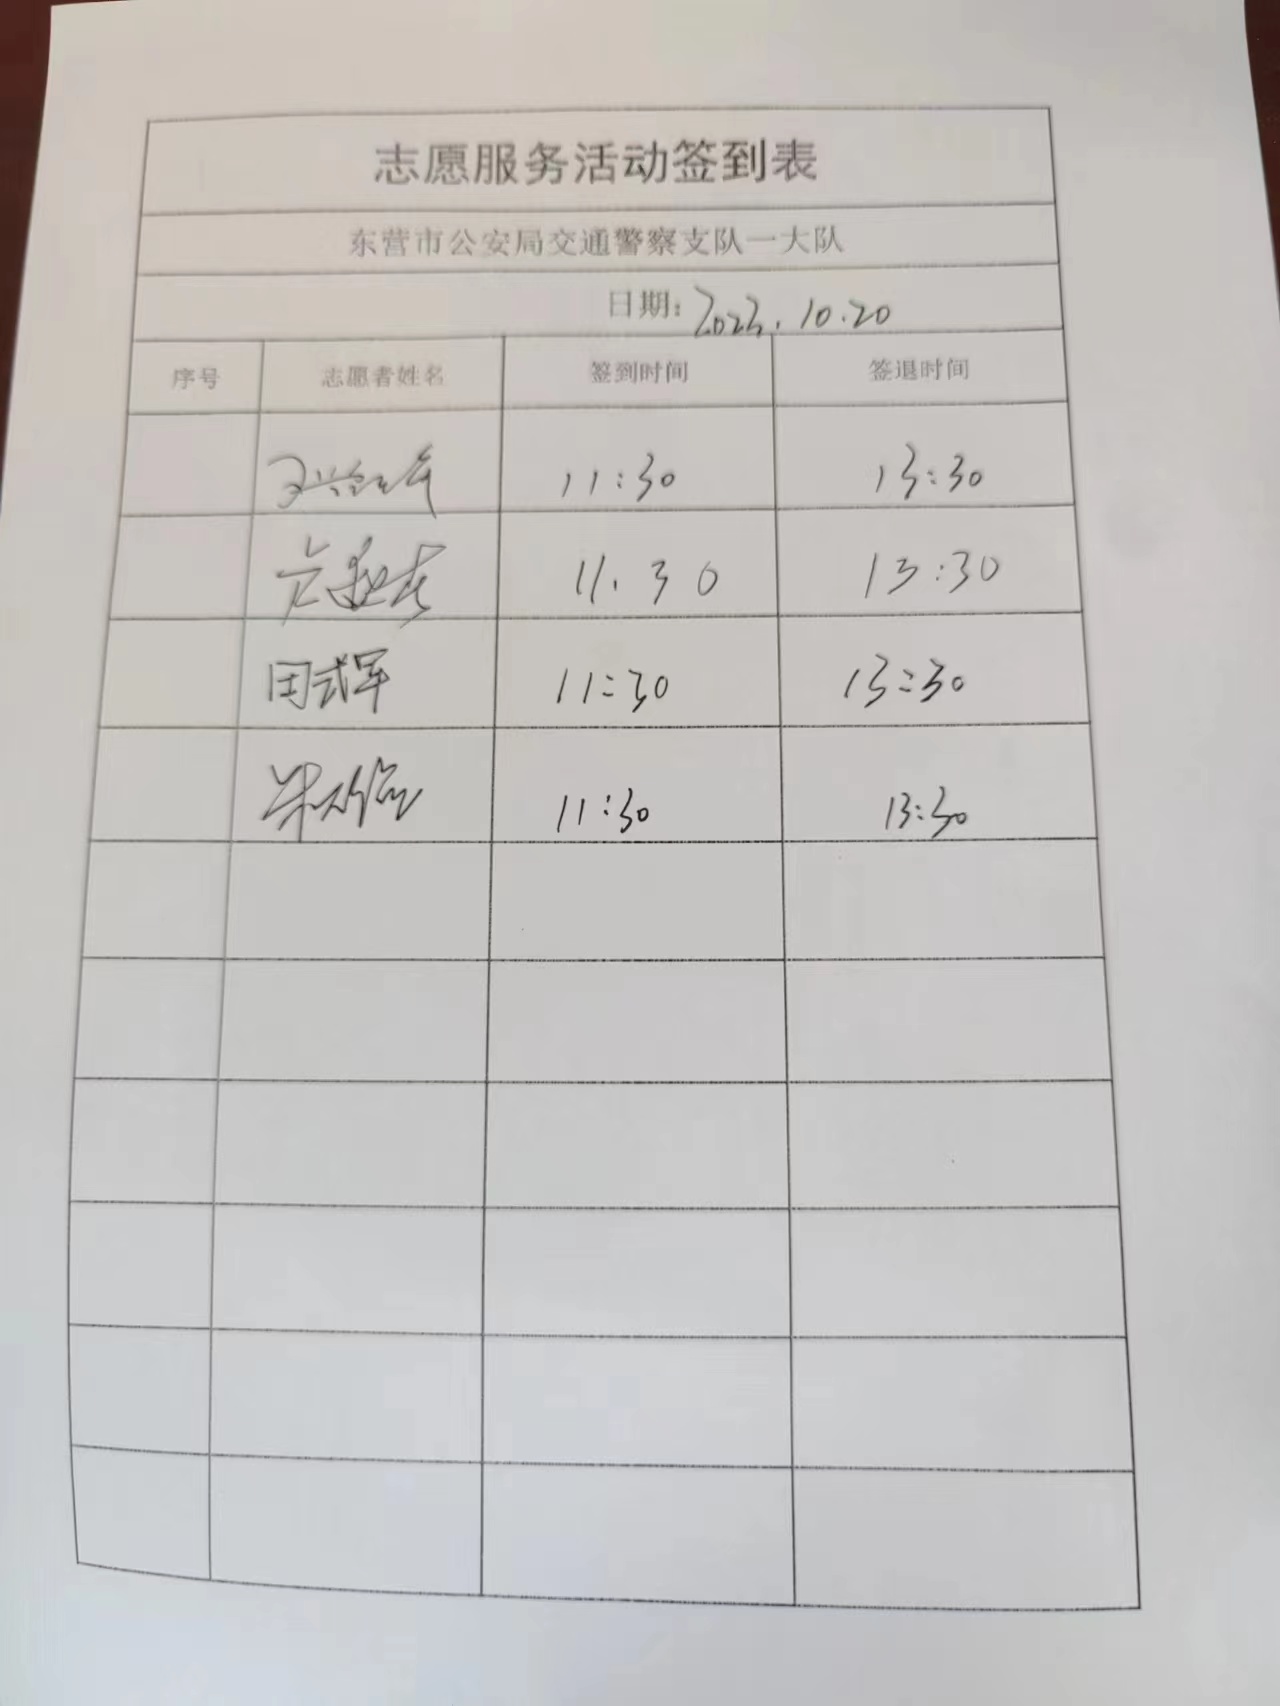 志愿服务活动签到表
东营市公安局交通警察支队一大队
日期：2022.10.20
序号 志愿者姓名 签到时间 签退时间
11:30 13:30
11.30 13:30
田武军 11:30 13:30
11:30 13:30